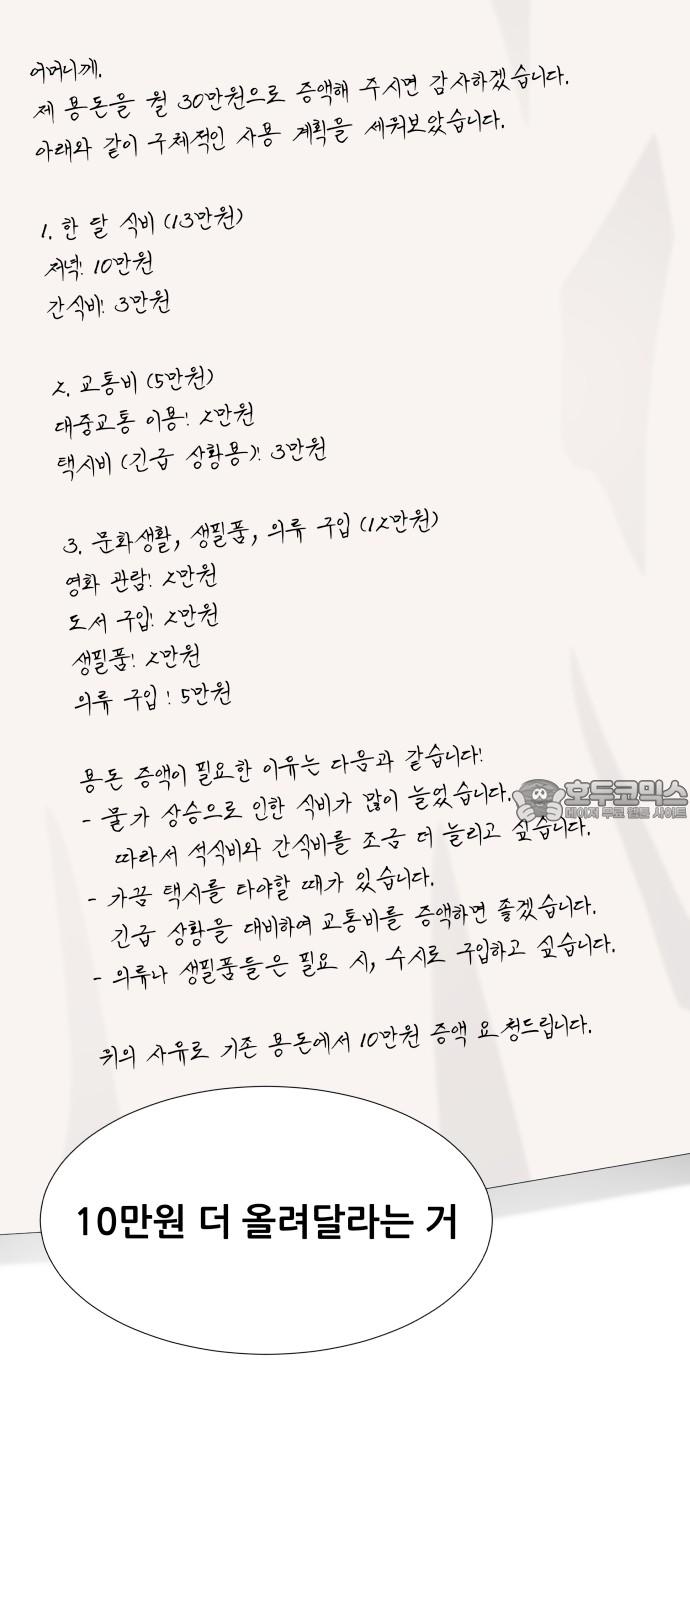 어머니께.
제 용돈을 월 30만원으로 증액해 주시면 감사하겠습니다.
아래와 같이 구체적인 사용 계획을 세워보았습니다.
1. 한 달 식비 (13만원)
저녁: 10만원
간식비: 3만원
2. 교통비 (5만원)
대중교통 이용: 2만원
택시비 (긴급 상황용): 3만원
3. 문화생활, 생필품, 의류 구입 (12만원)
영화 관람: 2만원
도서 구입: 2만원
생필품: 2만원
의류 구입 : 5만원
용돈 증액이 필요한 이유는 다음과 같습니다:
- 물가 상승으로 인한 식비가 많이 늘었습니다.
따라서 석식비와 간식비를 조금 더 늘리고 싶습니다.
호두코믹스
메이저 무료 웹툰 사이트
- 가끔 택시를 타야할 때가 있습니다.
긴급 상황을 대비하여 교통비를 증액하면 좋겠습니다.
- 의류나 생필품들은 필요 시, 수시로 구입하고 싶습니다.
위의 사유로 기존 용돈에서 10만원 증액 요청드립니다.
10만원 더 올려달라는 거